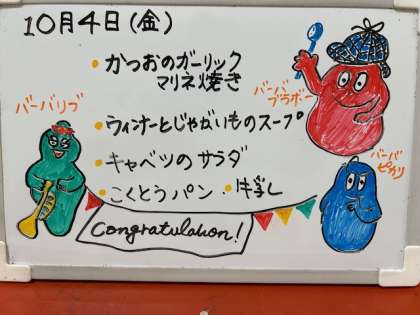 10月4日(金)
・かつおのガーリック
マリネ焼き
バーバブラボー
バーバリブ
・ウィンナーとじゃがいものスープ
・キャベツのサラダ
バーバピカリ
・こくとうパン ・牛乳
Congratulation!